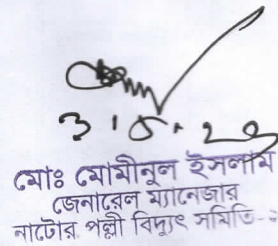 মোঃ মোমীনুল ইসলাম
জেনারেল ম্যানেজার
নাটোর পল্লী বিদ্যুৎ সমিতি-